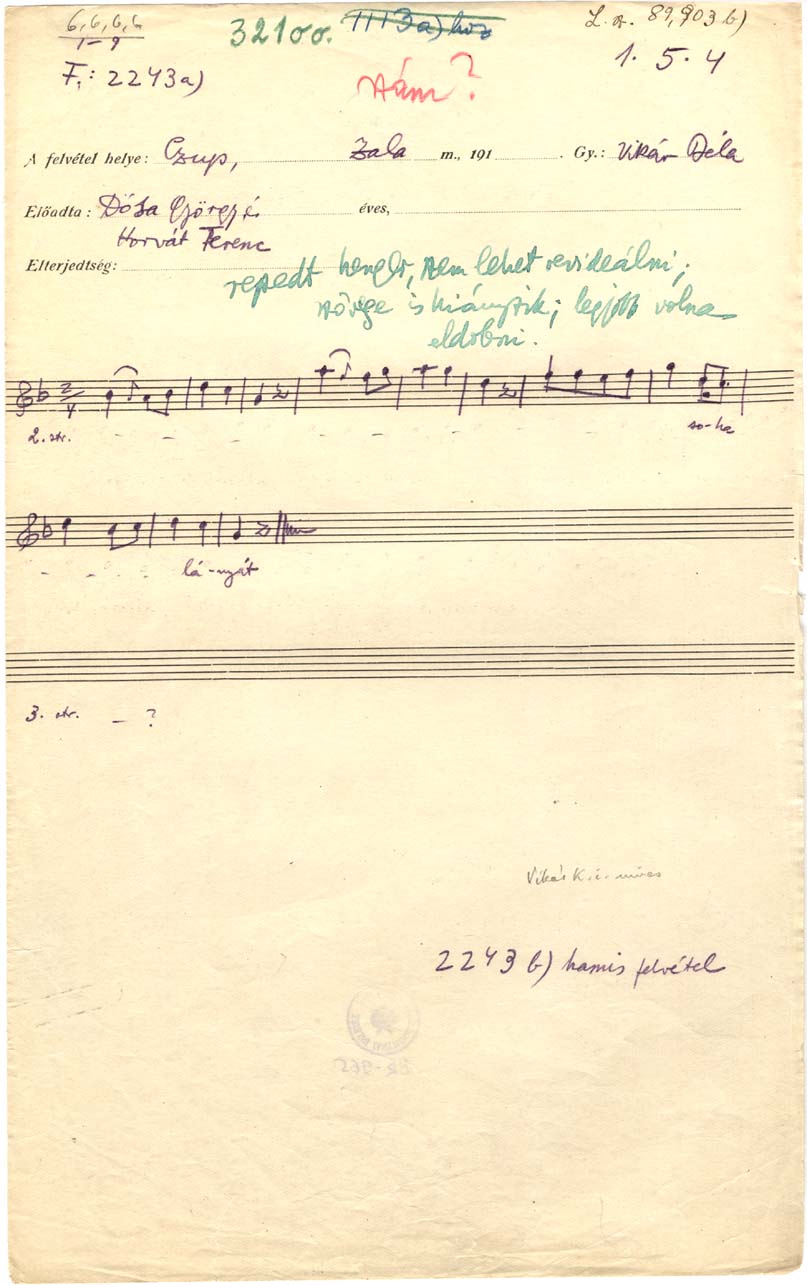 6, 6, 6, 6,
1-9
32100.
1113a) hoz
L. sz. 89,903 b)
F.: 2243a)
szám?
1. 5. 4
A felvétel helye: Czup, Zala m., 191 . Gy.: Vikár Béla
Előadta: Dósa Györgyi éves,
Horvát Ferenc
Elterjedtség:
repedt henger, nem lehet revideálni;
szövege is hiányzik; legjobb volna
eldobni.
2. str. - - - - - - so-ha
- - - lá-nyát
3. str. - ?
Vikár
2243 b) hamis felvétel